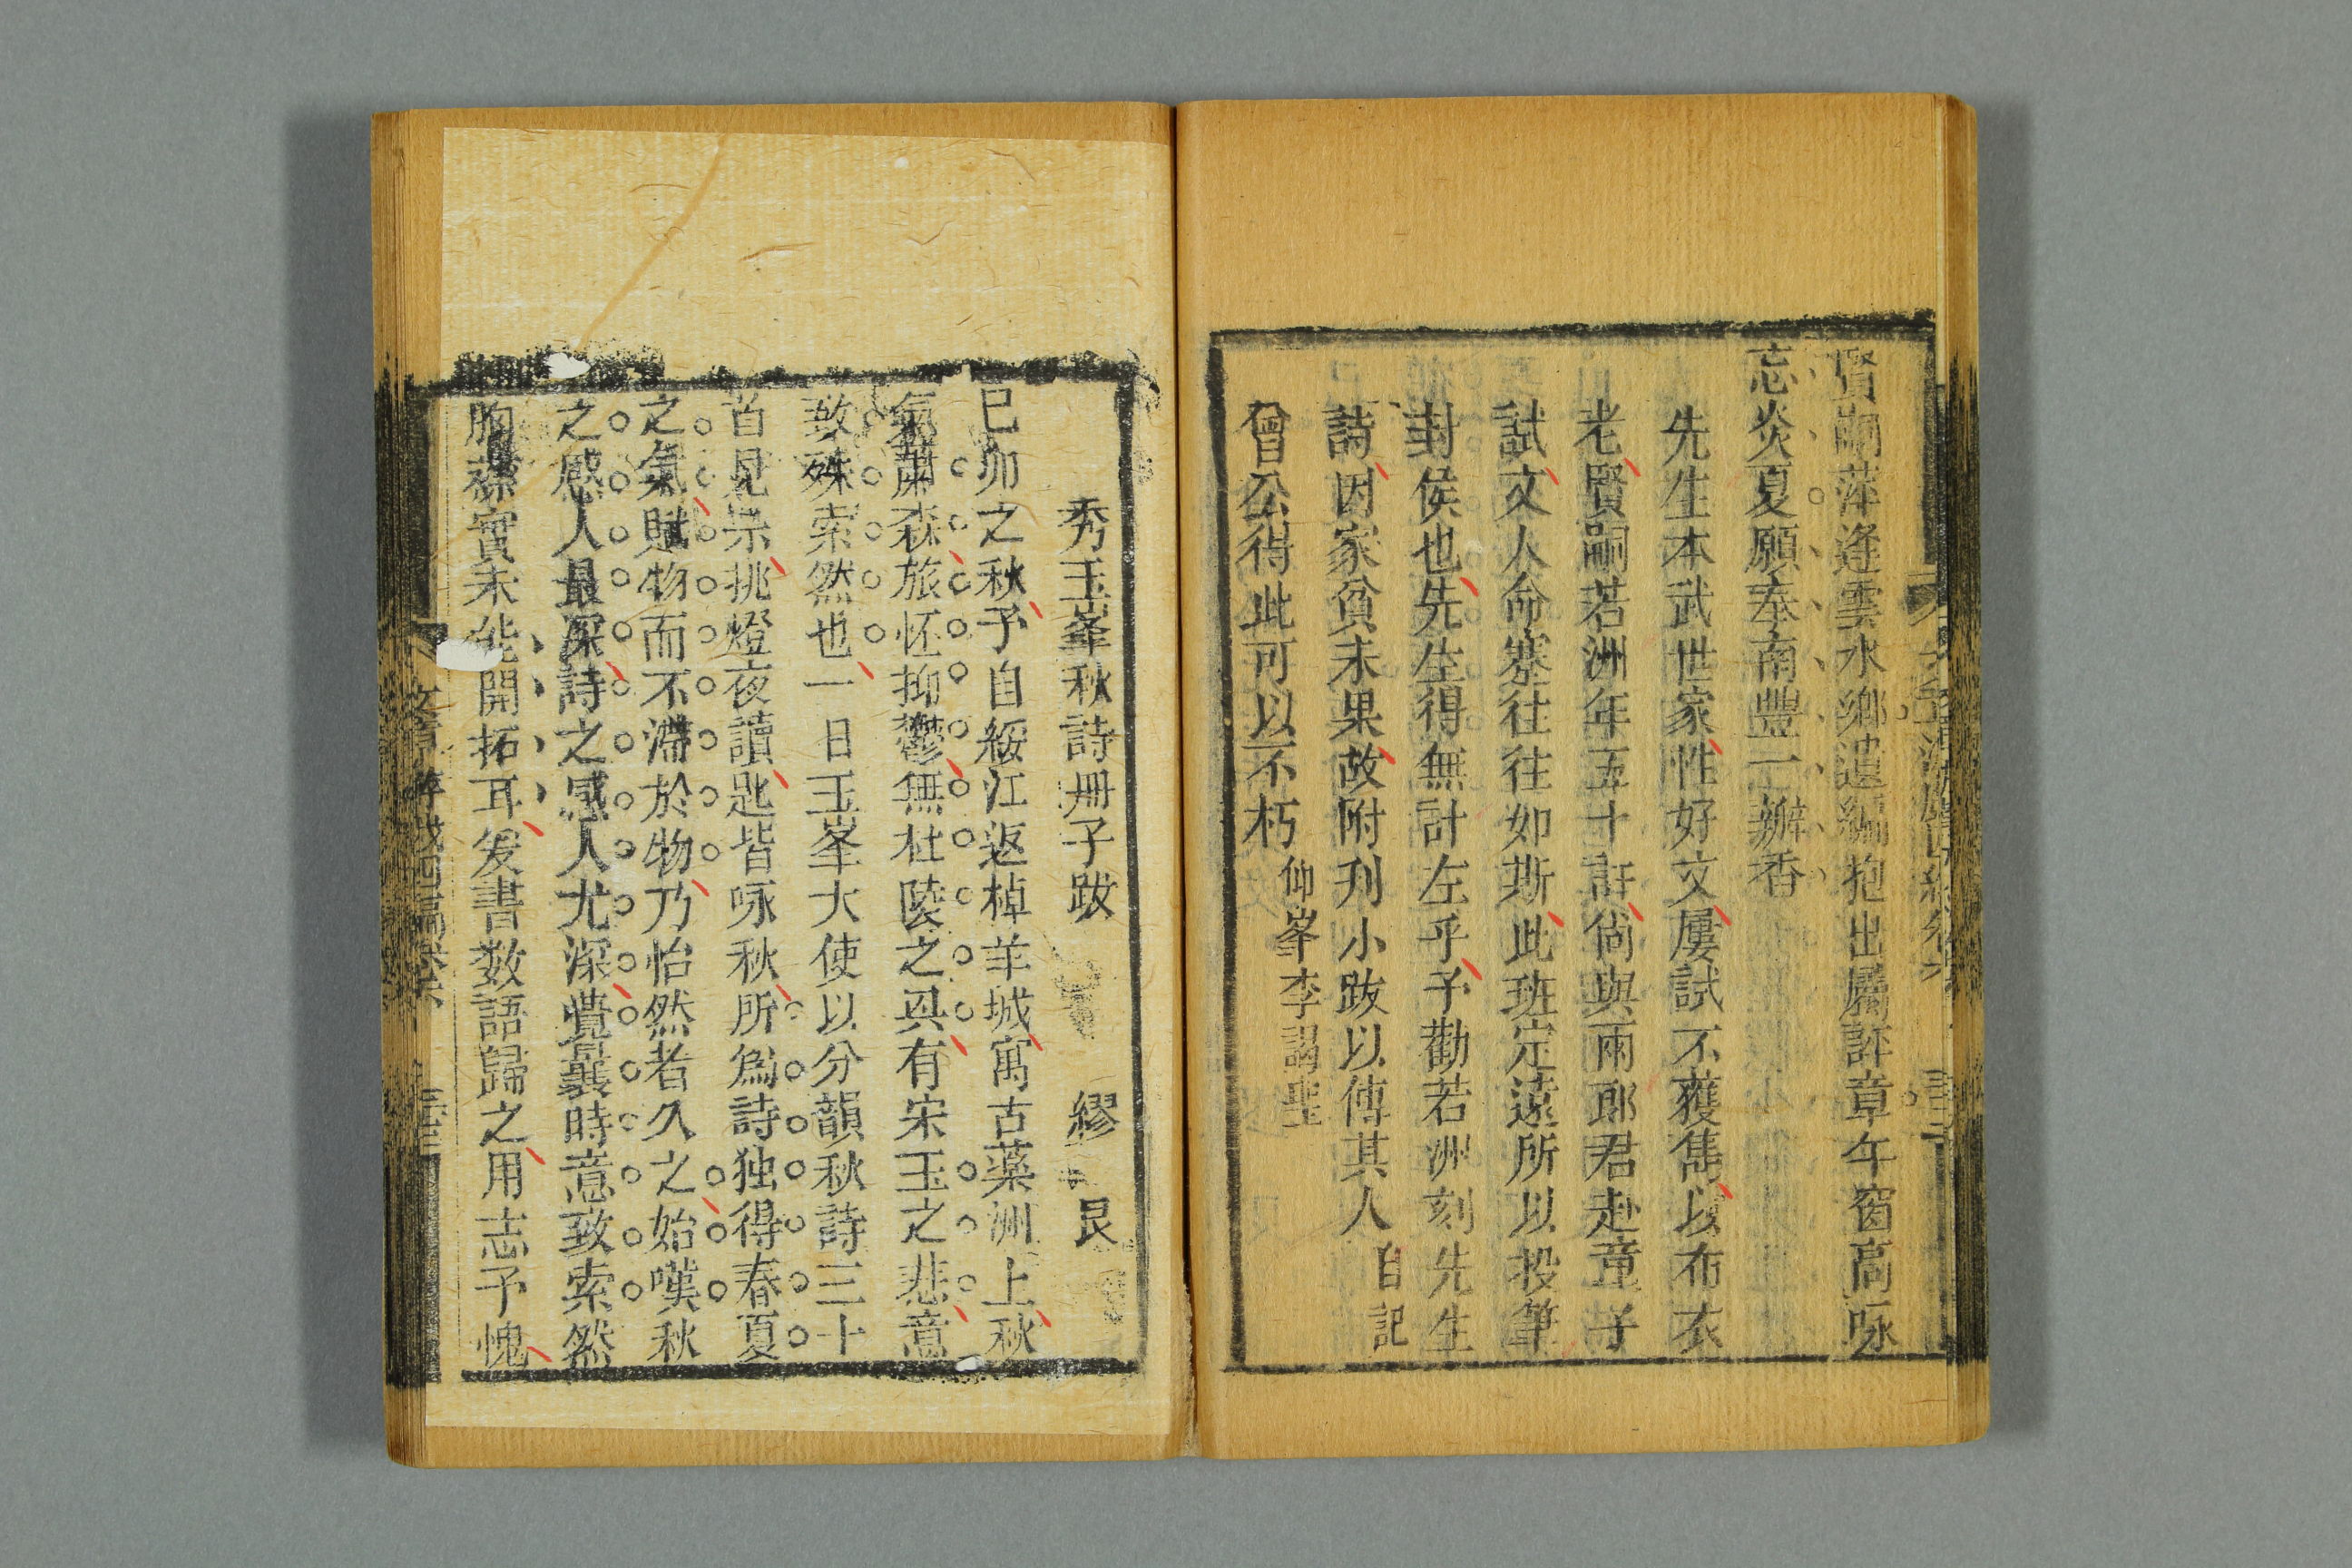 賢嗣萍逢雲水鄉遺編抱出屬評章午窗高咏
忘炎夏願奉南豐一瓣香
先生本武世家性好文屢試不獲雋以布衣
老賢嗣若洲年五十許尙與兩郎君赴童子
試文人命蹇往往如斯此班定遠所以投筆
封侯也先生得無計左乎予勸若洲刻先生
詩因家貧未果故附刋小跋以傳其人自記
曾公得此可以不朽仰峯李謁聖
秀玉峯秋詩冊子跋 繆艮
已卯之秋予自綏江返棹羊城寓古藥洲上秋
氣肅森旅怀抑鬱無杜陵之興有宋玉之悲意
致殊索然也一日玉峯大使以分韻秋詩三十
首見示挑燈夜讀匙皆咏秋所爲詩独得春夏
之氣賦物而不滯於物乃怡然者久之始嘆秋
之感人最深詩之感人尤深覺曩時意致索然
胸襟實未能開拓耳爰書数語歸之用志予愧